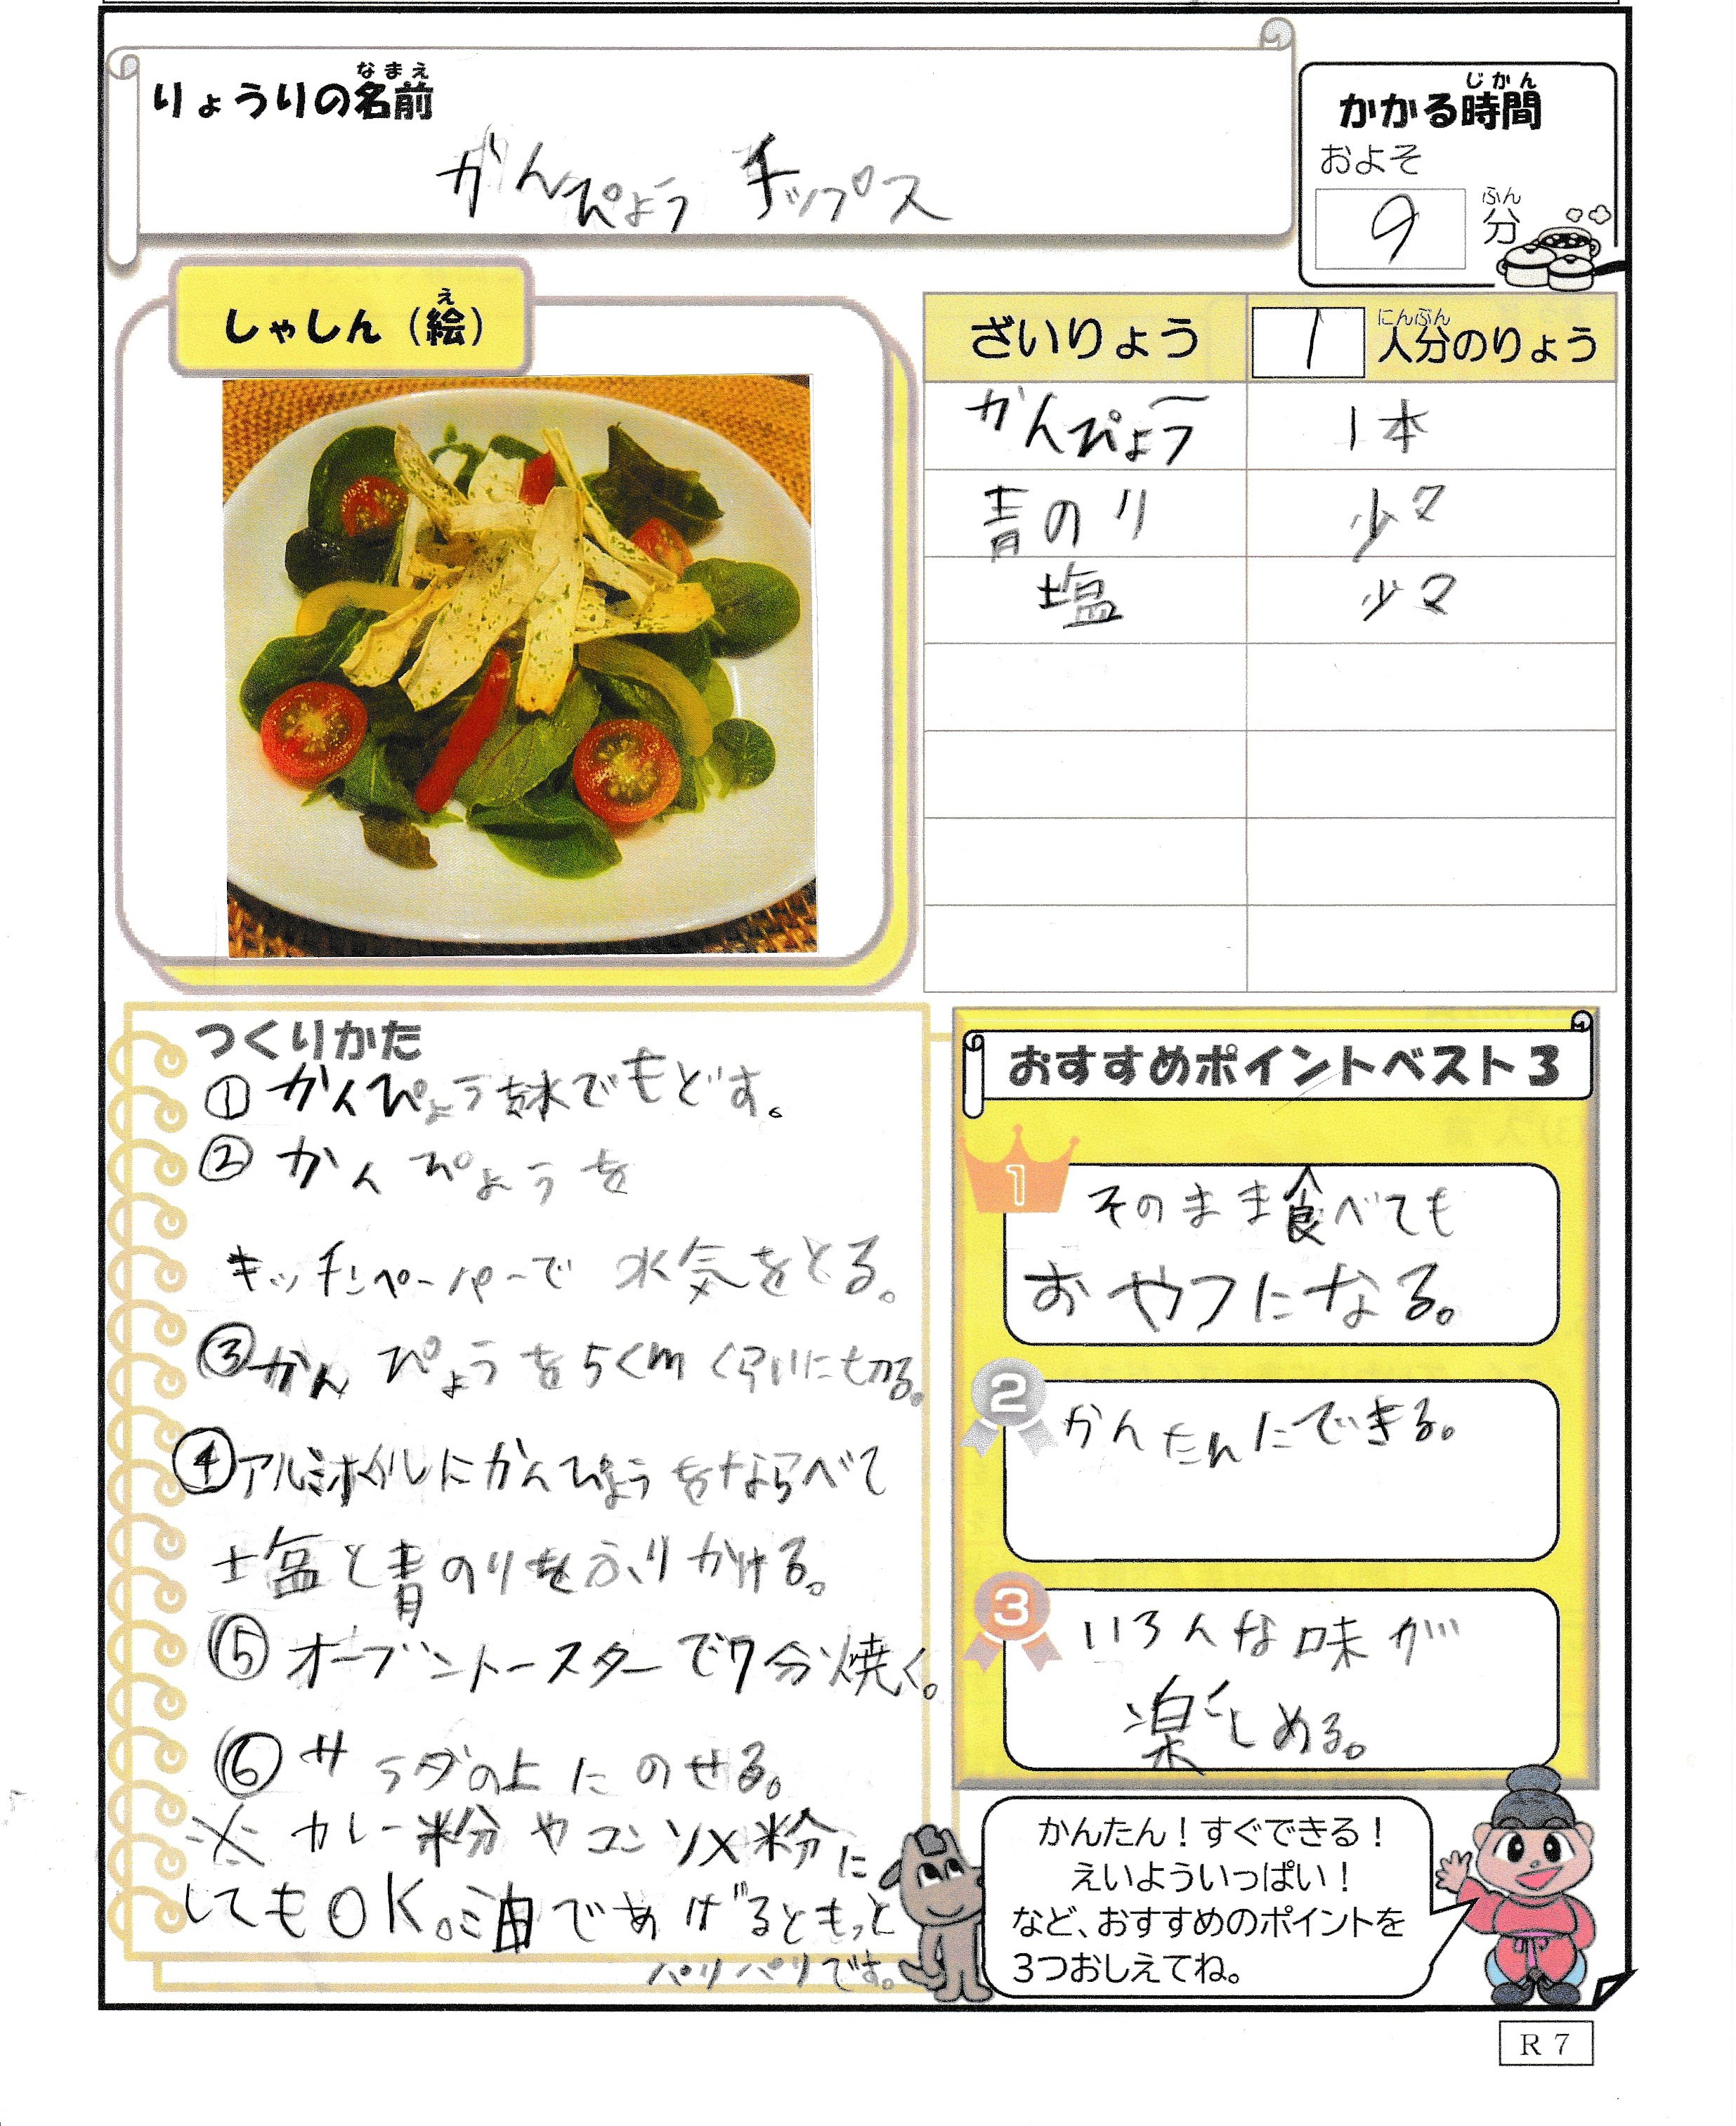 なまえ
りょうりの名前
かんぴょう チップス
じかん
かかる時間
およそ
9
ふん
分
え
しゃしん（絵）
ざいりょう
1
にんぶん
人分のりょう
かんぴょう 1本
青のり 少々
塩 少々
つくりかた
①かんぴょうを水でもどす。
②かんぴょうを
キッチンペーパーで 水気をとる。
③かんぴょうを5cmくらいに切る。
④アルミホイルにかんぴょうをならべて
塩と青のりをふりかける。
⑤オーブントースターで7分焼く。
⑥サラダの上にのせる。
※カレー粉やコンソメ粉に
してもOK。油であげるともっと
パリパリです。
おすすめポイントベスト3
1
そのまま食べても
おやつになる。
2
かんたんにできる。
3
いろんな味が
楽しめる。
かんたん！すぐできる！
えいよういっぱい！
など、おすすめのポイントを
3つおしえてね。
R7